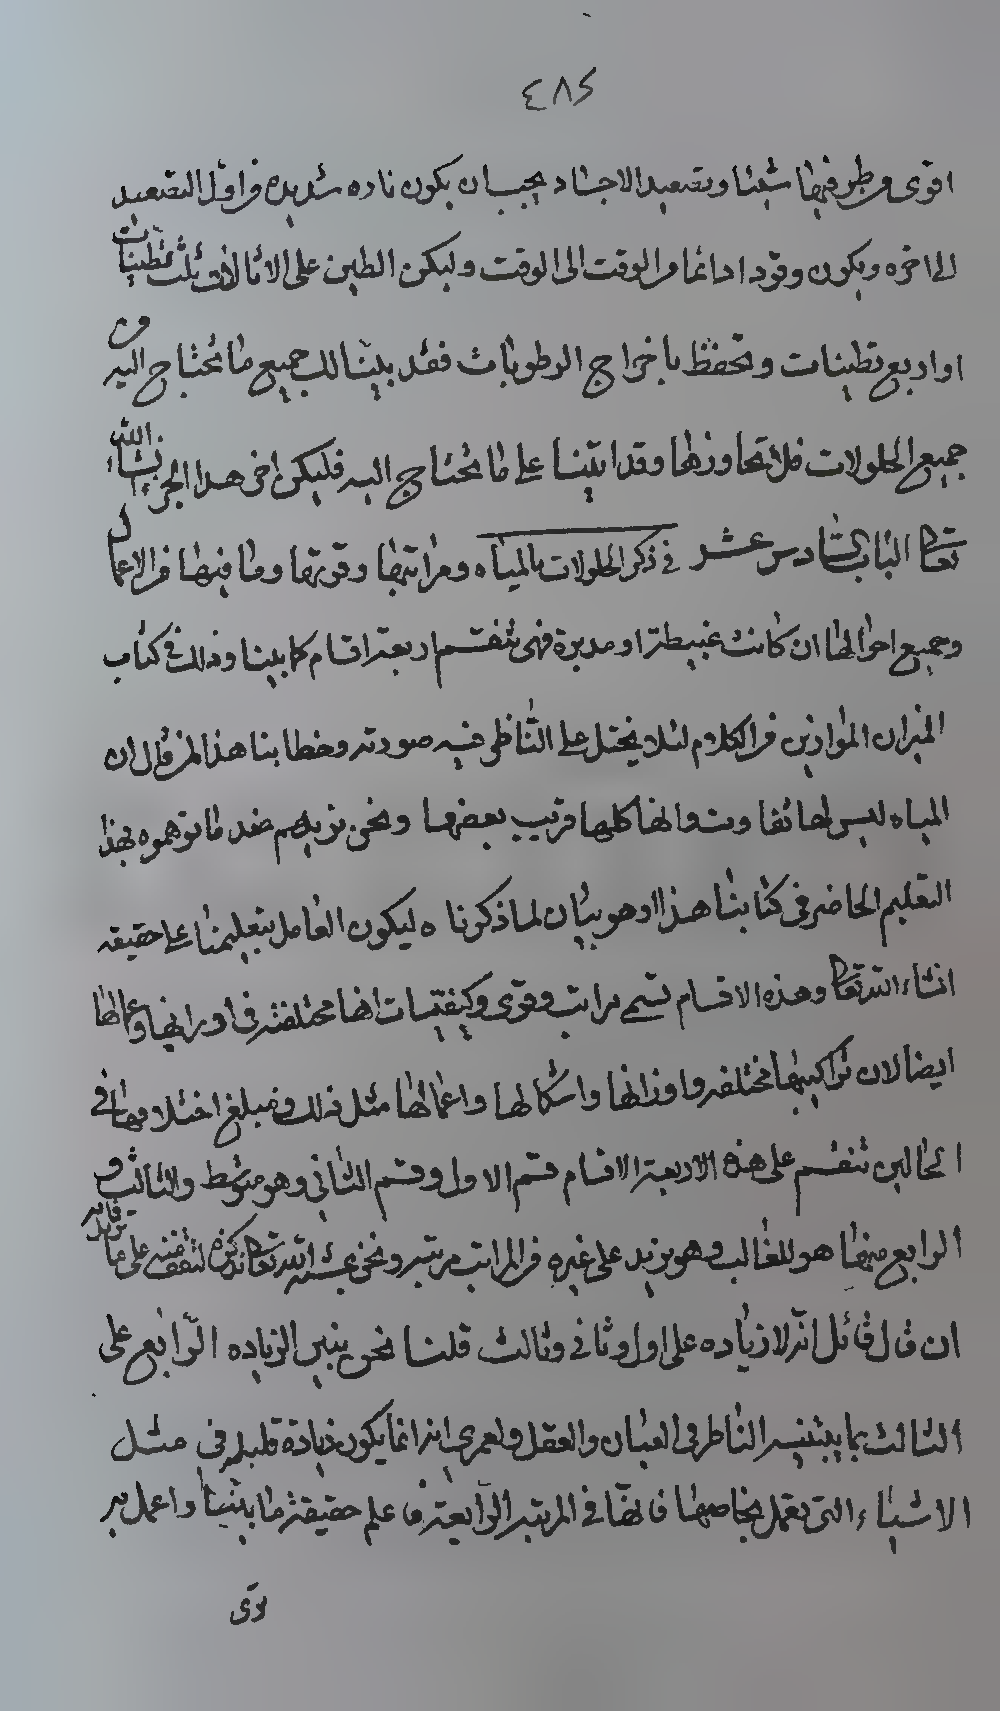 ٤٨٢
اقوى وطر فيها شيئا وتصعيد الاجساد يجب ان يكون ناره شديده من اول التصعيد
الى اخره ويكون وقودا دائما من الوقت الى الوقت وليكن الطين على الاثالات ثلث تطينات
او اربع تطينات وتحفظ باخراج الرطوبات فقد بينا لك جميع ما تحتاج اليه من
جميع الحلولات فلا تتجاوزها وقد اتينا على ما تحتاج اليه فليكن اخر هذا الجزء انشاء الله
تعالى الباب السادس عشر في ذكر الحلولات بالمياه ومراتبها وقوتها وما فيها من الاعمال
وجميع احوالها ان كانت غبيطة او مدبرة فهى تنقسم اربعة اقسام كما بينا وذلك في كتاب
الميزان الموازين من الكلام لئلا يختل على الناظر فيه صورته وخطابنا هذا لمن قال ان
المياه ليس لها تفاوت وانها كلها قريب بعضها ونحن نريهم ضد ما توهموه بهذا
التعليم الحاضر في كتابنا هذا اذ هو بيان لما ذكرناه ليكون العامل بتعليمنا على حقيقه
انشاء الله تعالى وهذه الاقسام تسمى مراتب وقوى وكيفيات انها مختلفة في اورانها واعمالها
ايضا لان تراكيبها مختلفه واوزانها واشكالها واعمالها مثل ذلك ومبلغ اختلافها في
الحالين تنقسم على هذه الاربعة الاقسام قسم الاول وقسم الثاني وهو متوسط والثالث و
الرابع منهما هو للغالب وهو يزيد على غيره من المراتب مرتبه ونحن بمشية الله تعالى نذكره لتقف منه على ما تريد
ان قال قائل انه لا زياده على اول وثاني وثالث قلنا نحن نبين الزياده الرابع على
الثالث بما يبينه الناظر في العيان والعقل ولعمري انه انما يكون زيادة قليله في مثل
الاشياء التى تعمل بخاصها فانها في المرتبه الرابعة فاعلم حقيقة ما بينا واعمل به